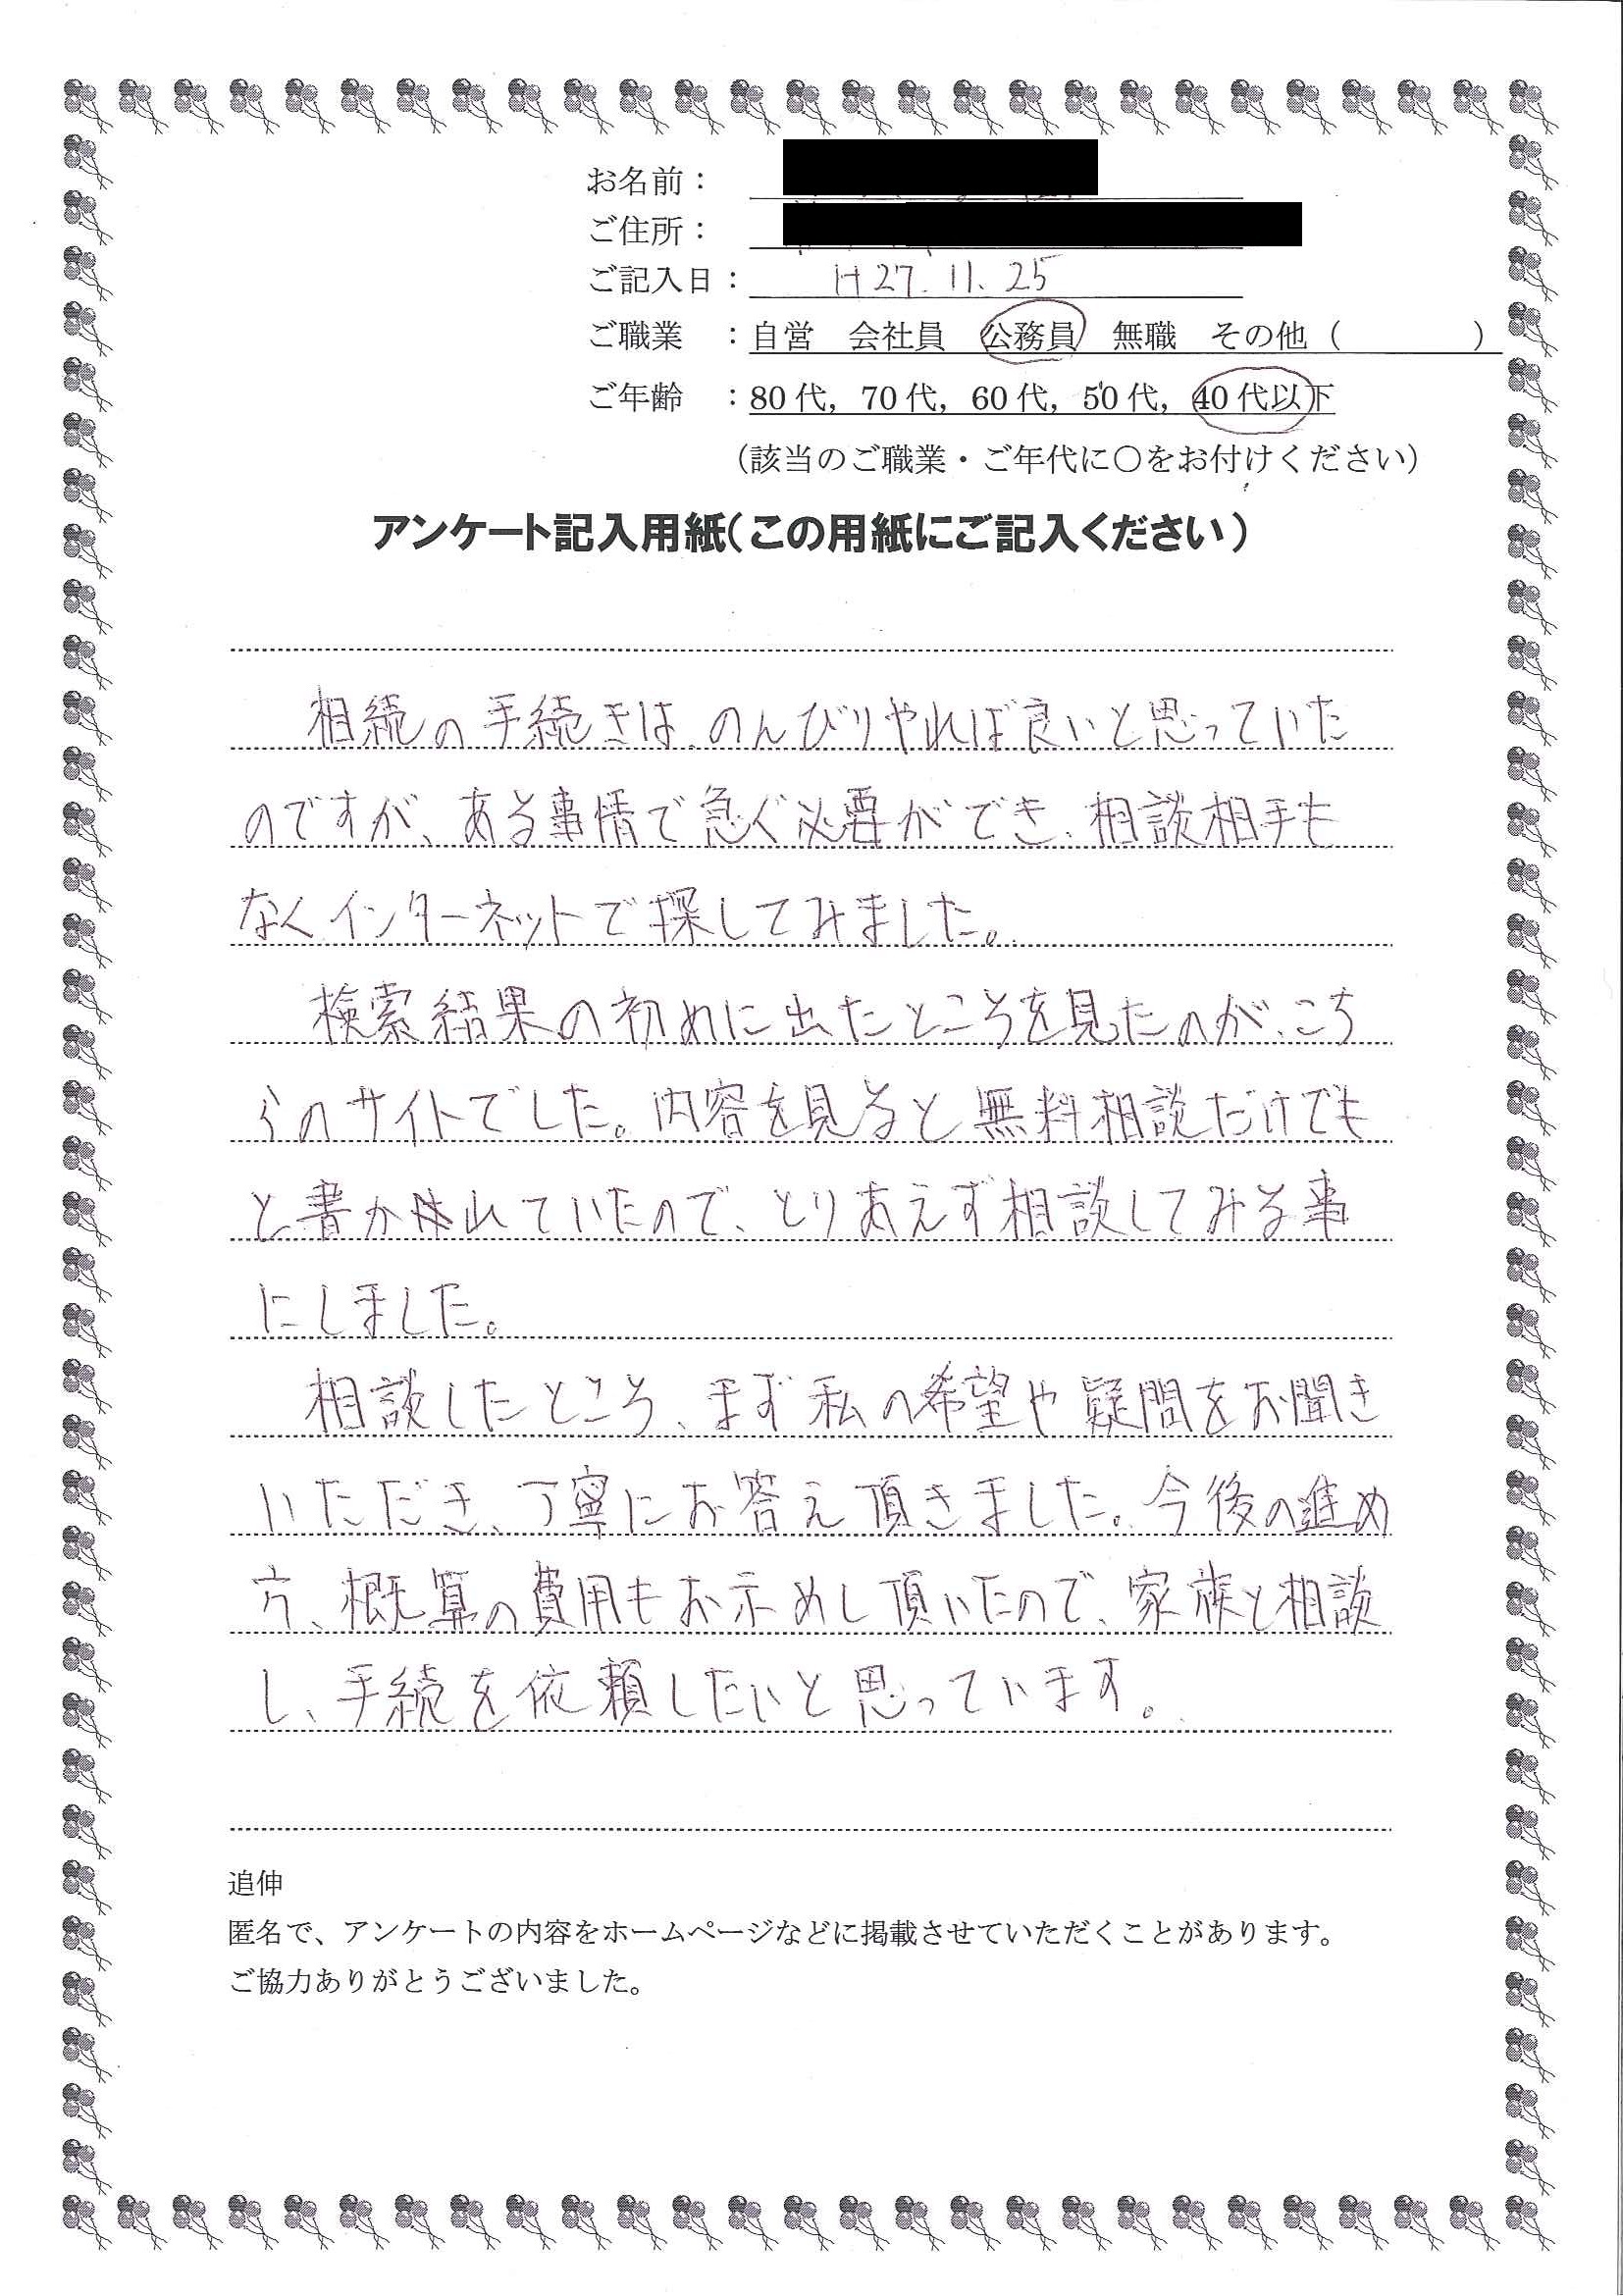 お名前：
ご住所：
ご記入日： H27.11.25
ご職業　：自営　会社員　公務員　無職　その他（　　　　）
ご年齢　：80代，70代，60代，50代，40代以下
（該当のご職業・ご年代に〇をお付けください）
アンケート記入用紙（この用紙にご記入ください）
相続の手続きは、のんびりやれば良いと思っていた
のですが、ある事情で急ぐ必要ができ、相談相手も
なくインターネットで探してみました。
検索結果の初めに出たところを見たのが、こち
らのサイトでした。内容を見ると無料相談だけでも
と書かれていたので、とりあえず相談してみる事
にしました。
相談したところ、まず私の希望や疑問をお聞き
いただき、丁寧にお答え頂きました。今後の進め
方、概算の費用もお示めし頂いたので、家族と相談
し、手続を依頼したいと思っています。
追伸
匿名で、アンケートの内容をホームページなどに掲載させていただくことがあります。
ご協力ありがとうございました。